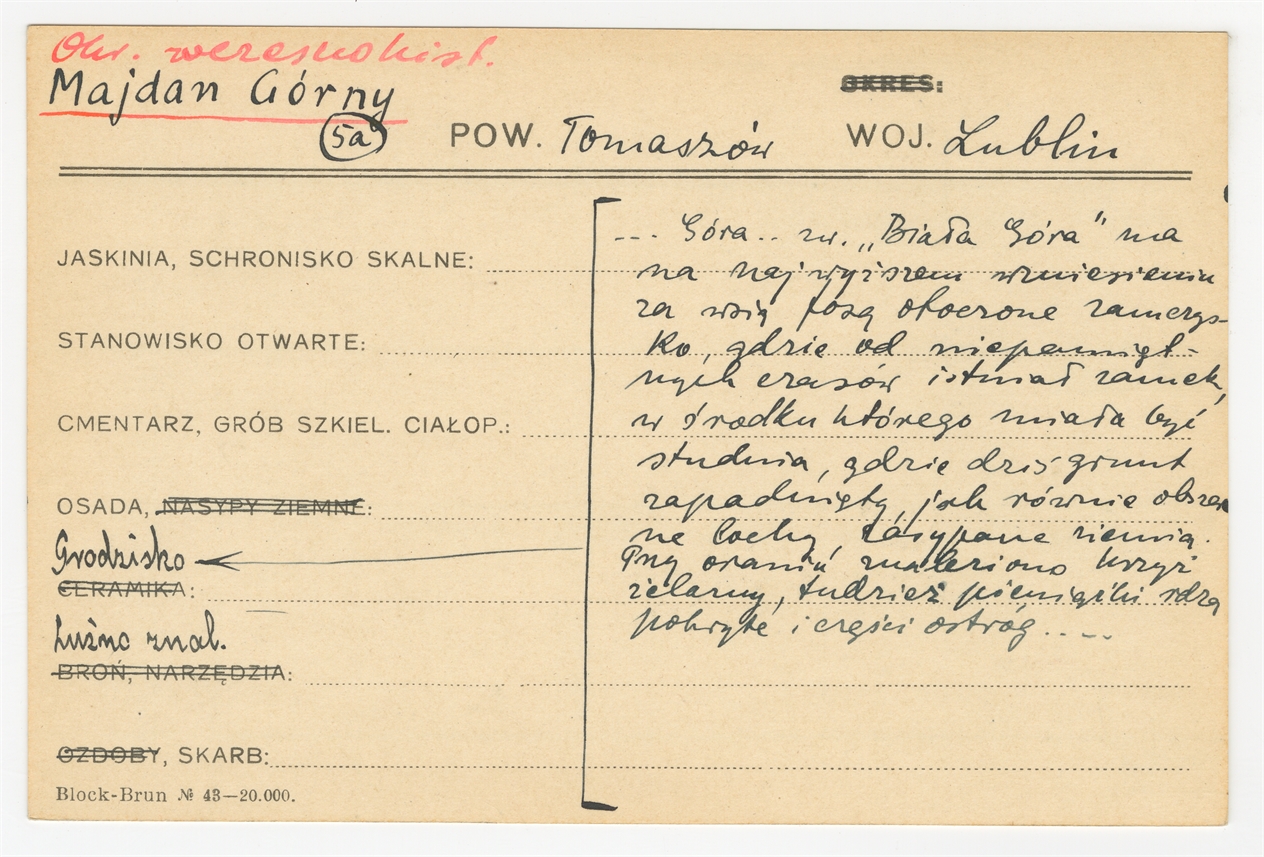 Okr. wczesnohist.
Majdan Górny
OKRES:
5a
POW. Tomaszów WOJ. Lublin
JASKINIA, SCHRONISKO SKALNE:
STANOWISKO OTWARTE:
CMENTARZ, GRÓB SZKIEL. CIAŁOP.:
OSADA, NASYPY ZIEMNE:
Grodzisko
CERAMIKA:
Luźne znal.
BROŃ, NARZĘDZIA:
OZDOBY, SKARB:
Block-Brun № 43—20.000.
... Góra.. zw. „Biała Góra" ma
na najwyższem wzniesieniu
za wsią fosą otoczone zamczys-
ko, gdzie od niepamięt-
nych czasów istniał zamek,
w środku którego miała być
studnia, gdzie dziś grunt
zapadnięty, jak równie obszer
ne lochy, zasypane ziemią.
Przy oraniu znaleziono krzyż
żelazny, tudzież pieniążki rdzą
pokryte i części ostróg.....